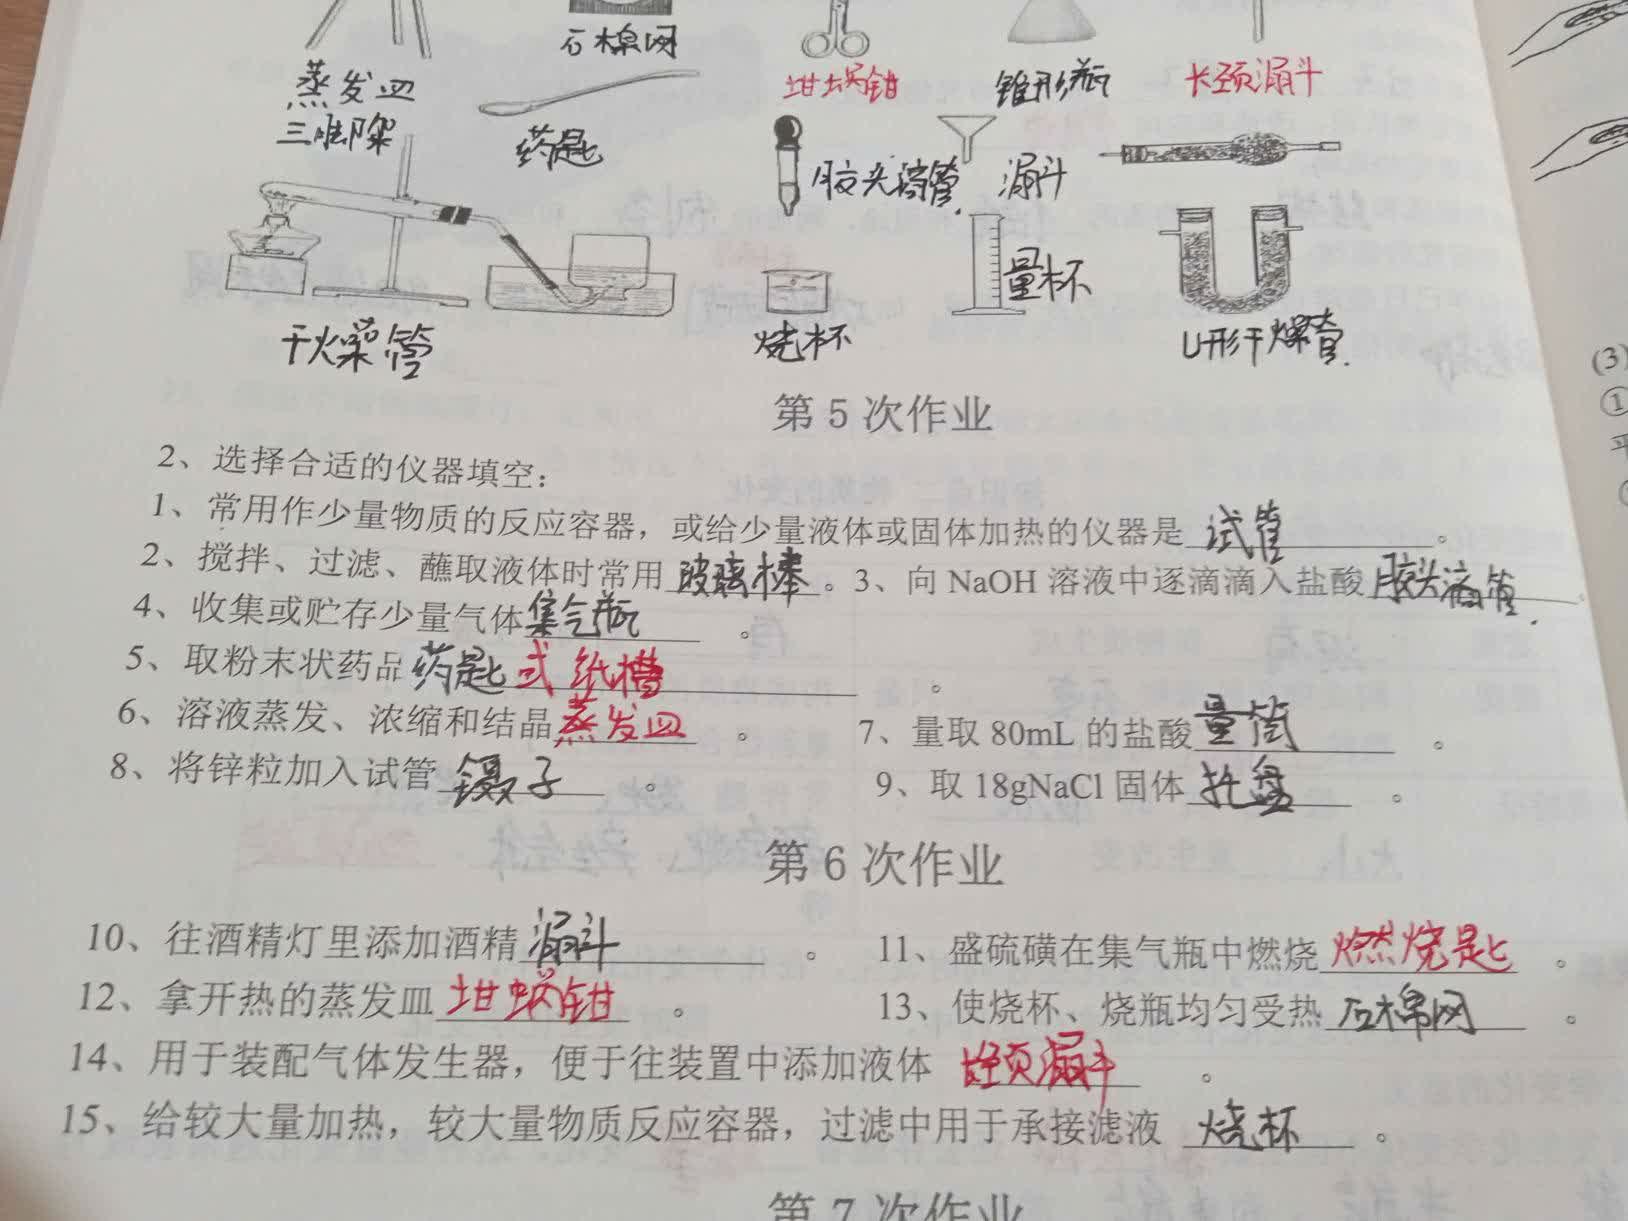 石棉网
蒸发皿
坩埚钳
锥形瓶
长颈漏斗
三脚架
药匙
胶头滴管
漏斗
量杯
干燥管
烧杯
U形干燥管
第5次作业
2、选择合适的仪器填空：
1、常用作少量物质的反应容器，或给少量液体或固体加热的仪器是 试管 。
2、搅拌、过滤、蘸取液体时常用 玻璃棒 。3、向 NaOH 溶液中逐滴滴入盐酸 胶头滴管 。
4、收集或贮存少量气体 集气瓶 。
5、取粉末状药品 药匙 或纸槽 。
6、溶液蒸发、浓缩和结晶 蒸发皿 。 7、量取 80mL 的盐酸 量筒 。
8、将锌粒加入试管 镊子 。 9、取 18gNaCl 固体 托盘 。
第6次作业
10、往酒精灯里添加酒精 漏斗 。 11、盛硫磺在集气瓶中燃烧 燃烧匙 。
12、拿开热的蒸发皿 坩埚钳 。 13、使烧杯、烧瓶均匀受热 石棉网 。
14、用于装配气体发生器，便于往装置中添加液体 长颈漏斗 。
15、给较大量加热，较大量物质反应容器，过滤中用于承接滤液 烧杯 。
第7次作业
(3)
①